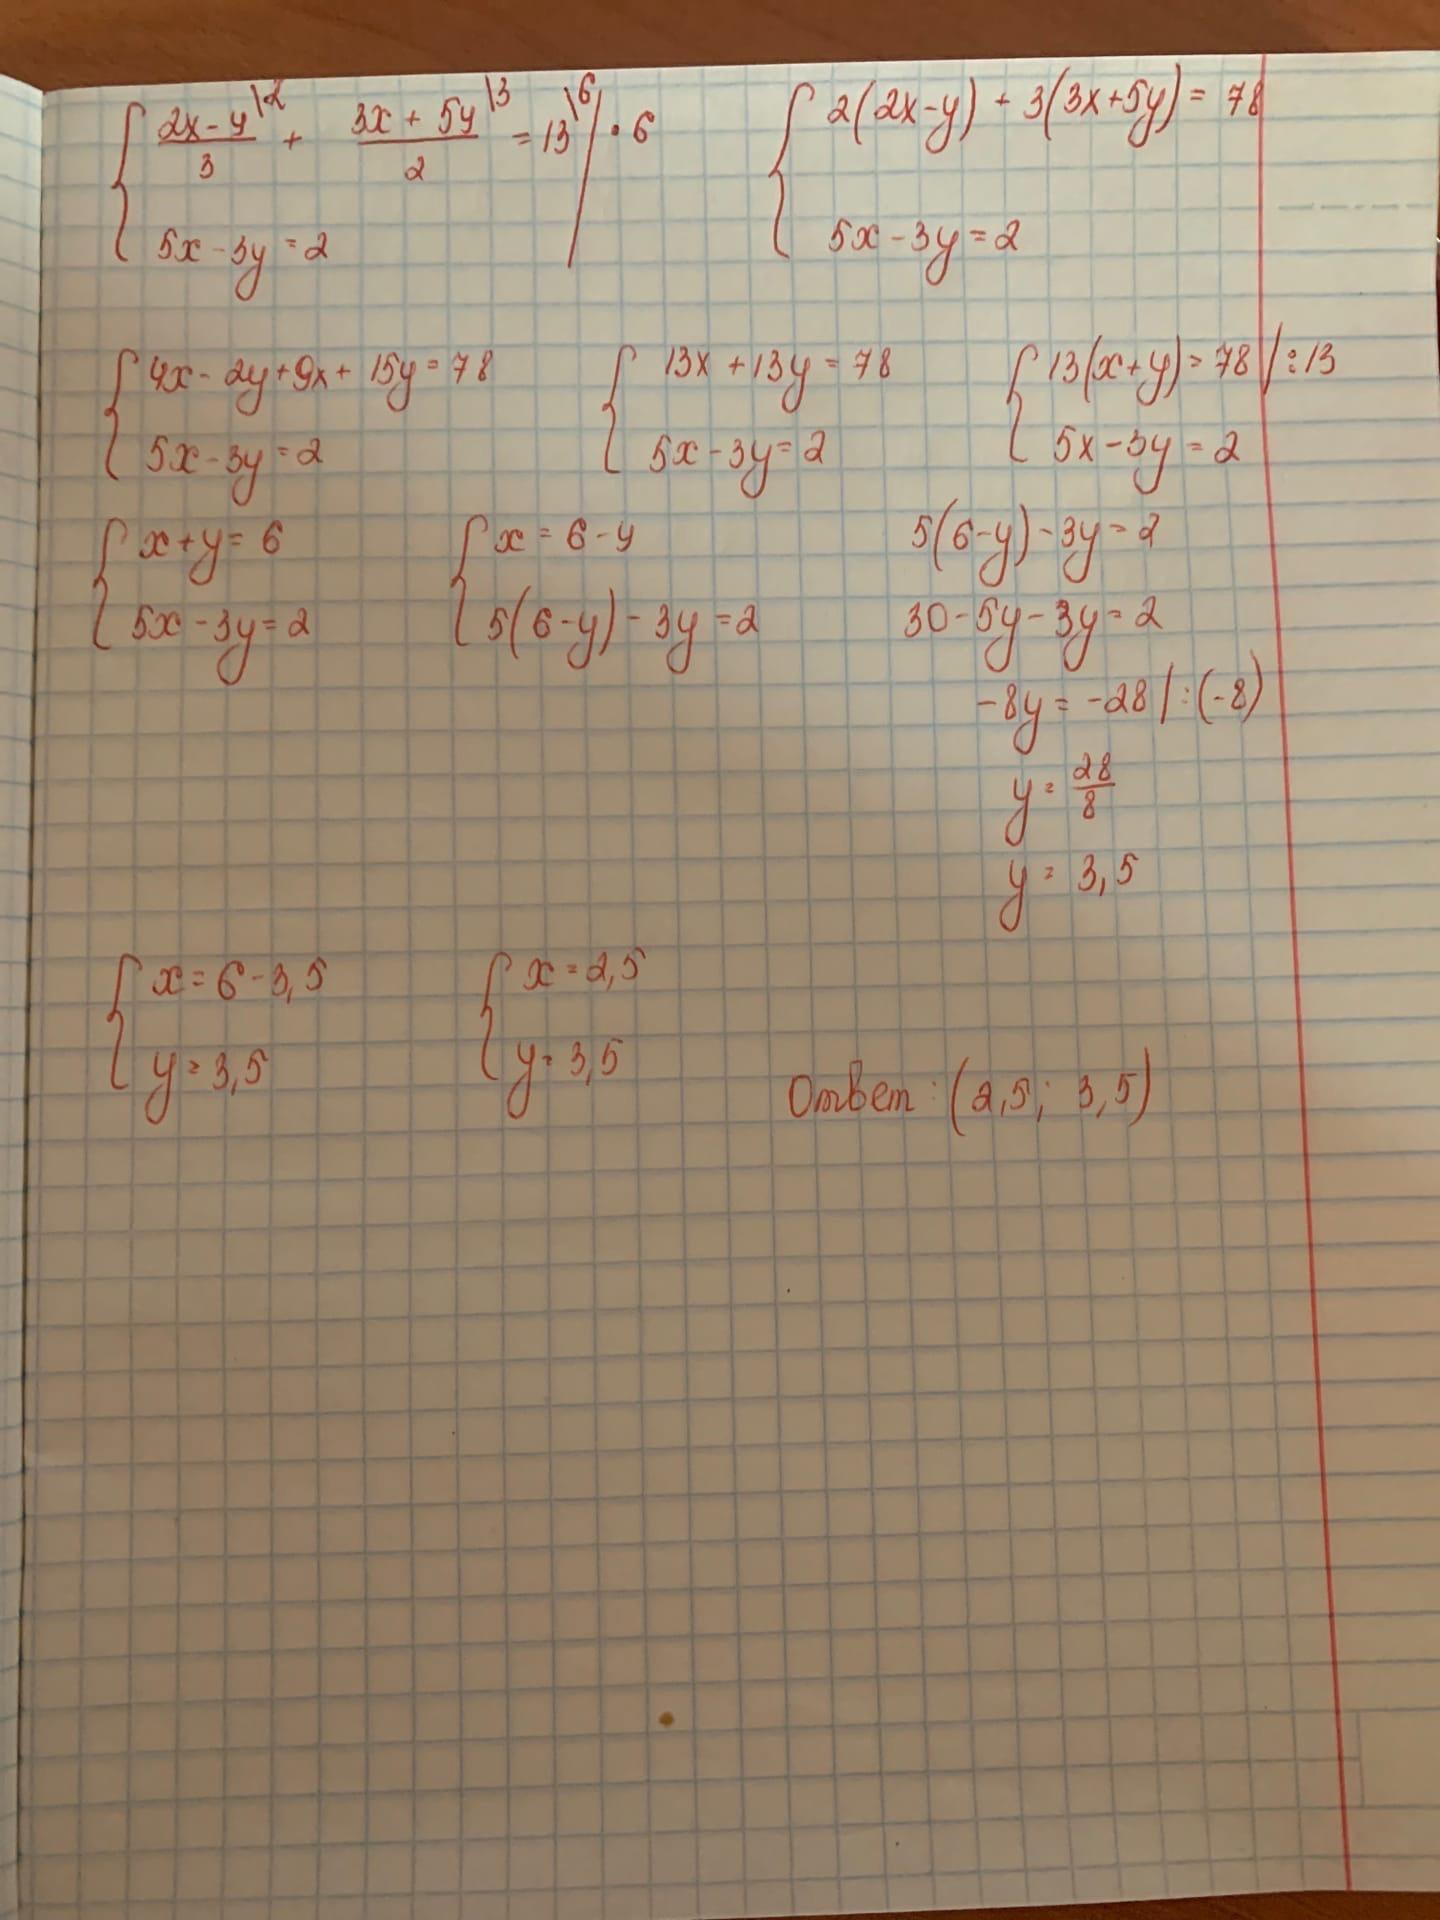 { (2x-y)/3 \2 + (3x+5y)/2 \3 = 13 \6 | · 6
5x-3y=2
{ 2(2x-y) + 3(3x+5y) = 78
5x-3y=2
{ 4x-2y+9x+15y=78
5x-3y=2
{ 13x+13y=78
5x-3y=2
{ 13(x+y)=78 | :13
5x-3y=2
{ x+y=6
5x-3y=2
{ x=6-y
5(6-y)-3y=2
5(6-y)-3y=2
30-5y-3y=2
-8y=-28 | :(-8)
y=28/8
y=3,5
{ x=6-3,5
y=3,5
{ x=2,5
y=3,5
Ответ: (2,5; 3,5)